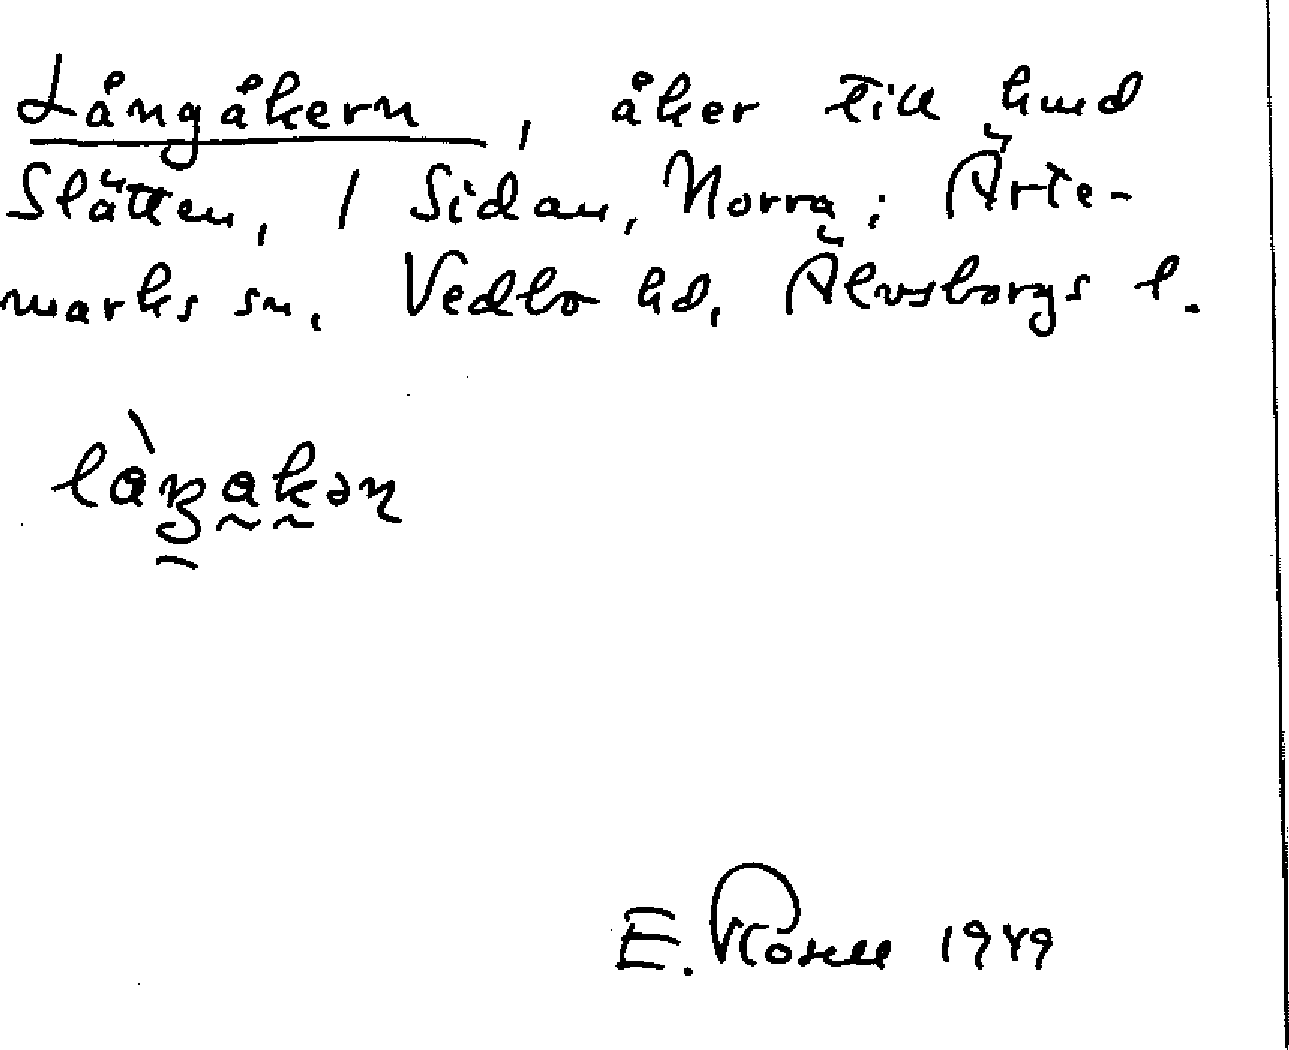 Långåkern, åker till hmd
Slätten, 1 Sidan, Norra; Ärte-
marks sn. Vedbo hd, Älvsborgs l.
E. Rosell 1949